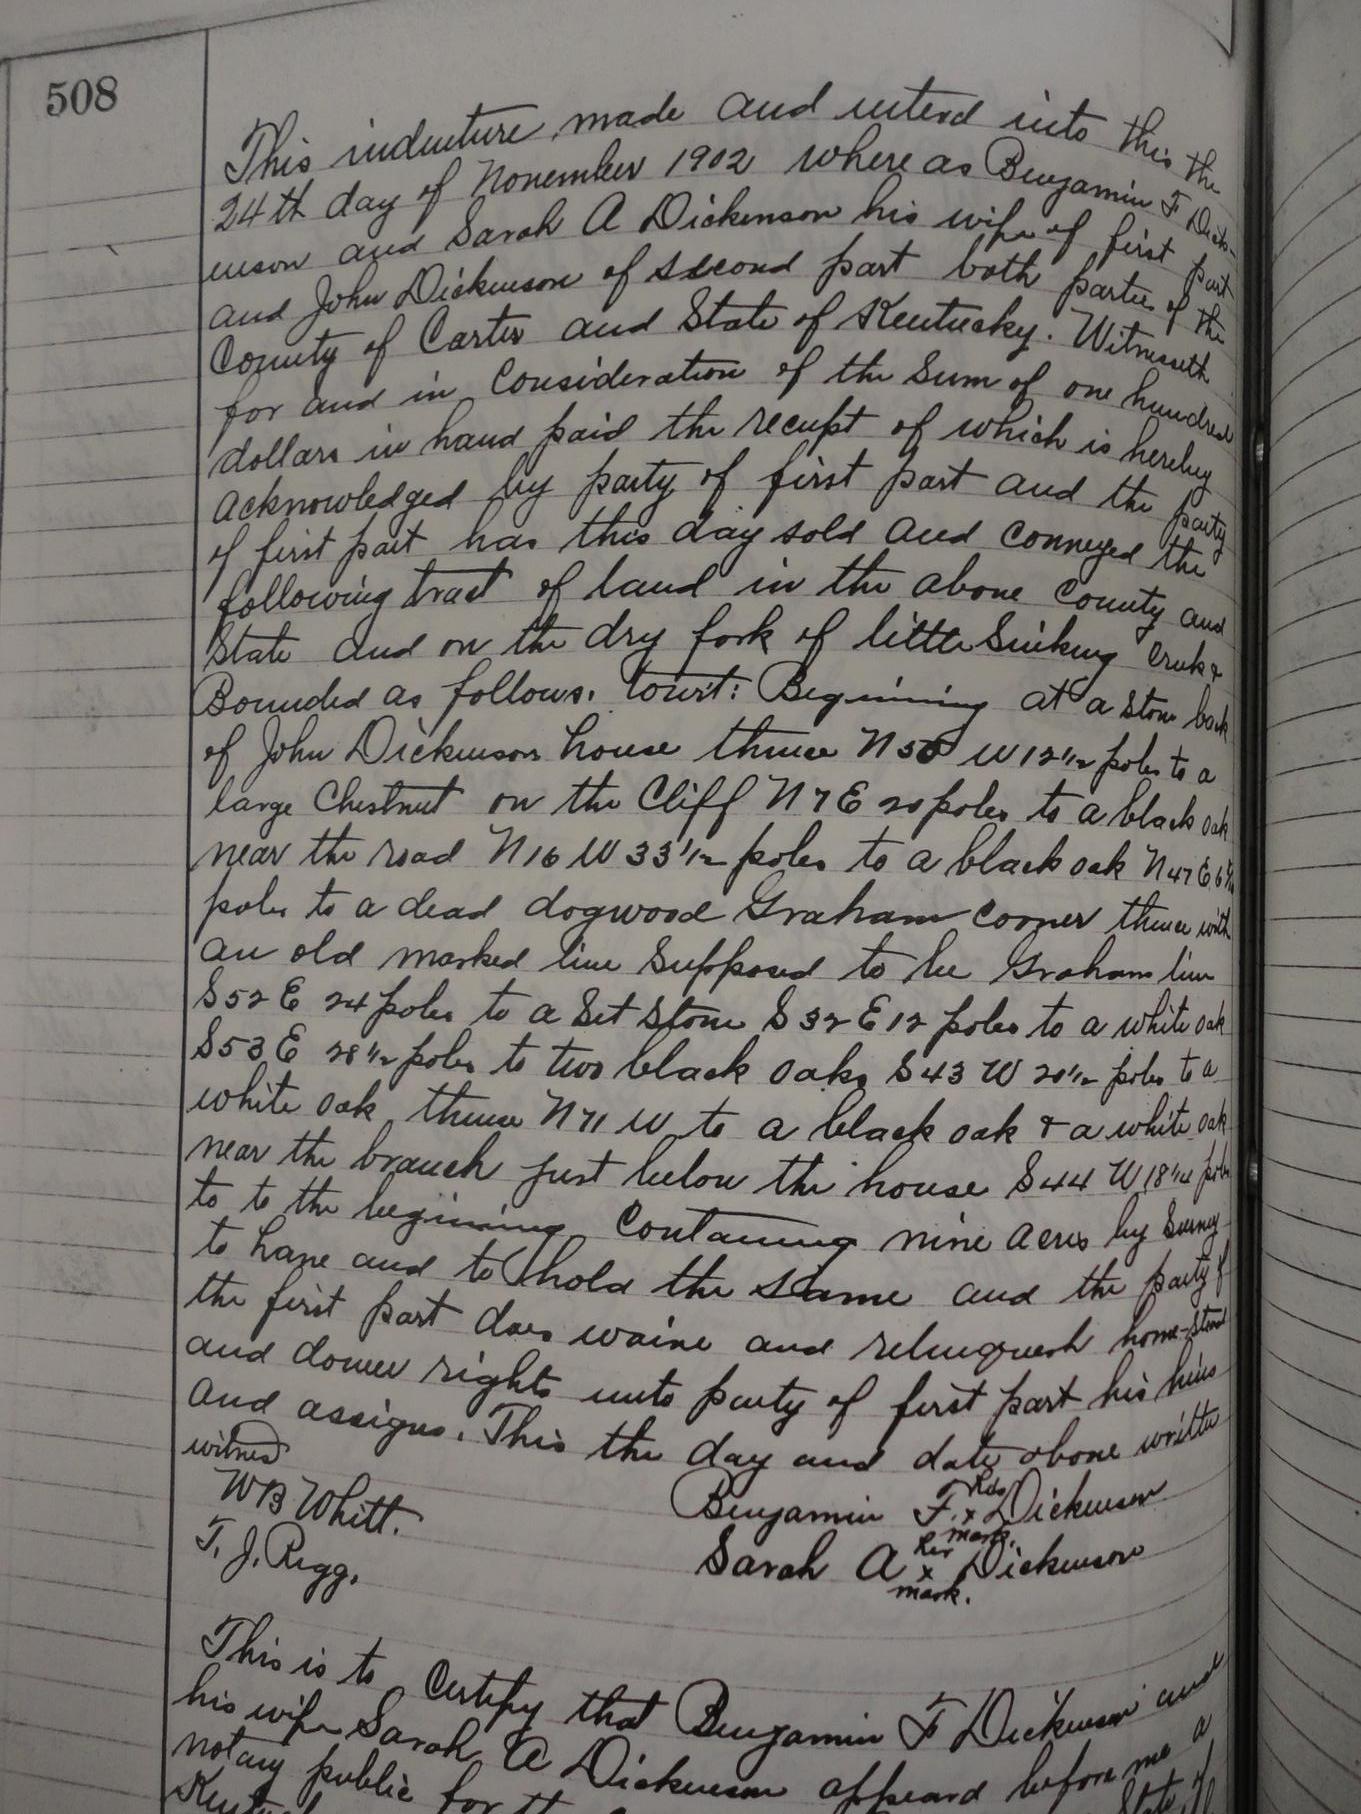 508
This indenture made and enterd into this the
24th day of November 1902 where as Benjamin F Dick-
enson and Sarah A Dickenson his wife of first part
and John Dickenson of second part both parties of the
County of Carter and State of Kentucky. Witnesseth
for and in Consideration of the Sum of one hundred
dollars in hand paid the receipt of which is hereby
acknowledged by party of first part and the party
of first part has this day sold and conveyed the
following tract of land in the above County and
State and on the dry fork of little Sinking Creek &
Bounded as follows. towit: Beginning at a stone back
of John Dickenson house thence N 50 W 12 1/2 poles to a
large Chestnut on the Cliff N 7 E 20 poles to a black oak
near the road N 16 W 33 1/2 poles to a black oak N 47 E
poles to a dead dogwood Graham corner thence with
an old marked line Supposed to be Graham line
S 52 E 24 poles to a Set Stone S 32 E 12 poles to a white oak
S 53 E 28 1/2 poles to two black oaks S 43 W 20 1/2 poles to a
white oak thence N 71 W to a black oak & a white oak
near the branch just below the house S 44 W 18 1/4 poles
to to the begining Containing nine acres by Survey
to have and to hold the same and the party of
the first part does waive and relinquesh home-stead
and dower rights unto party of first part his heirs
and assigns. This the day and date above written
witness
W B Whitt.
T. J. Rigg.
Benjamin F. his x mark. Dickenson
Sarah A her x mark. Dickenson
This is to Certify that Benjamin F Dickenson and
his wife Sarah A Dickenson appeard before me a
notary public for the State of